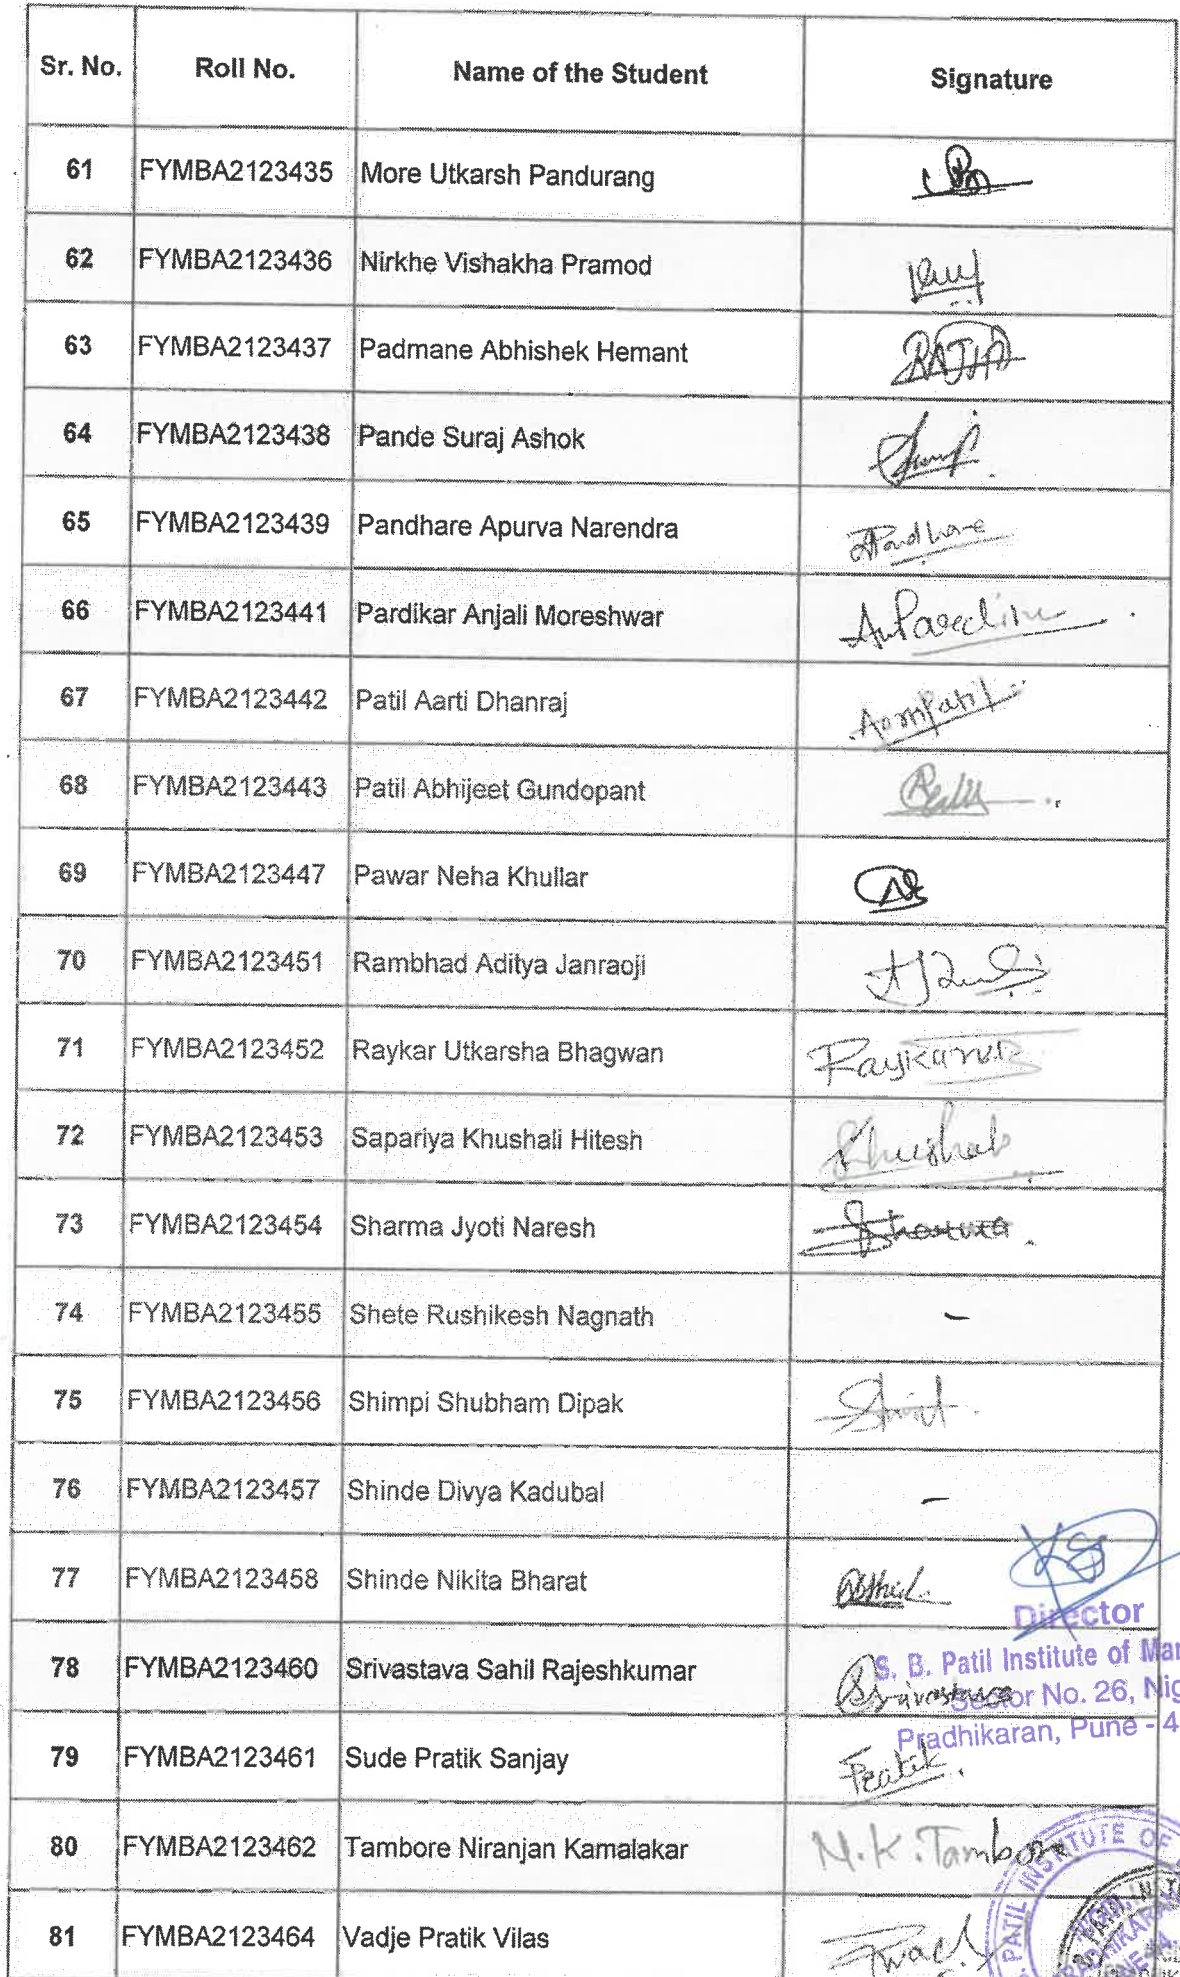 Sr. No. Roll No. Name of the Student Signature
61 FYMBA2123435 More Utkarsh Pandurang
62 FYMBA2123436 Nirkhe Vishakha Pramod
63 FYMBA2123437 Padmane Abhishek Hemant
64 FYMBA2123438 Pande Suraj Ashok
65 FYMBA2123439 Pandhare Apurva Narendra
66 FYMBA2123441 Pardikar Anjali Moreshwar
67 FYMBA2123442 Patil Aarti Dhanraj
68 FYMBA2123443 Patil Abhijeet Gundopant
69 FYMBA2123447 Pawar Neha Khullar
70 FYMBA2123451 Rambhad Aditya Janraoji
71 FYMBA2123452 Raykar Utkarsha Bhagwan
72 FYMBA2123453 Sapariya Khushali Hitesh
73 FYMBA2123454 Sharma Jyoti Naresh
74 FYMBA2123455 Shete Rushikesh Nagnath -
75 FYMBA2123456 Shimpi Shubham Dipak
76 FYMBA2123457 Shinde Divya Kadubal -
77 FYMBA2123458 Shinde Nikita Bharat
Director
78 FYMBA2123460 Srivastava Sahil Rajeshkumar Srivastava
S. B. Patil Institute of Mar
Sector No. 26, Nig
Pradhikaran, Pune - 4
79 FYMBA2123461 Sude Pratik Sanjay Pratik
80 FYMBA2123462 Tambore Niranjan Kamalakar N. K. Tambore
81 FYMBA2123464 Vadje Pratik Vilas
PATIL INSTITUTE OF